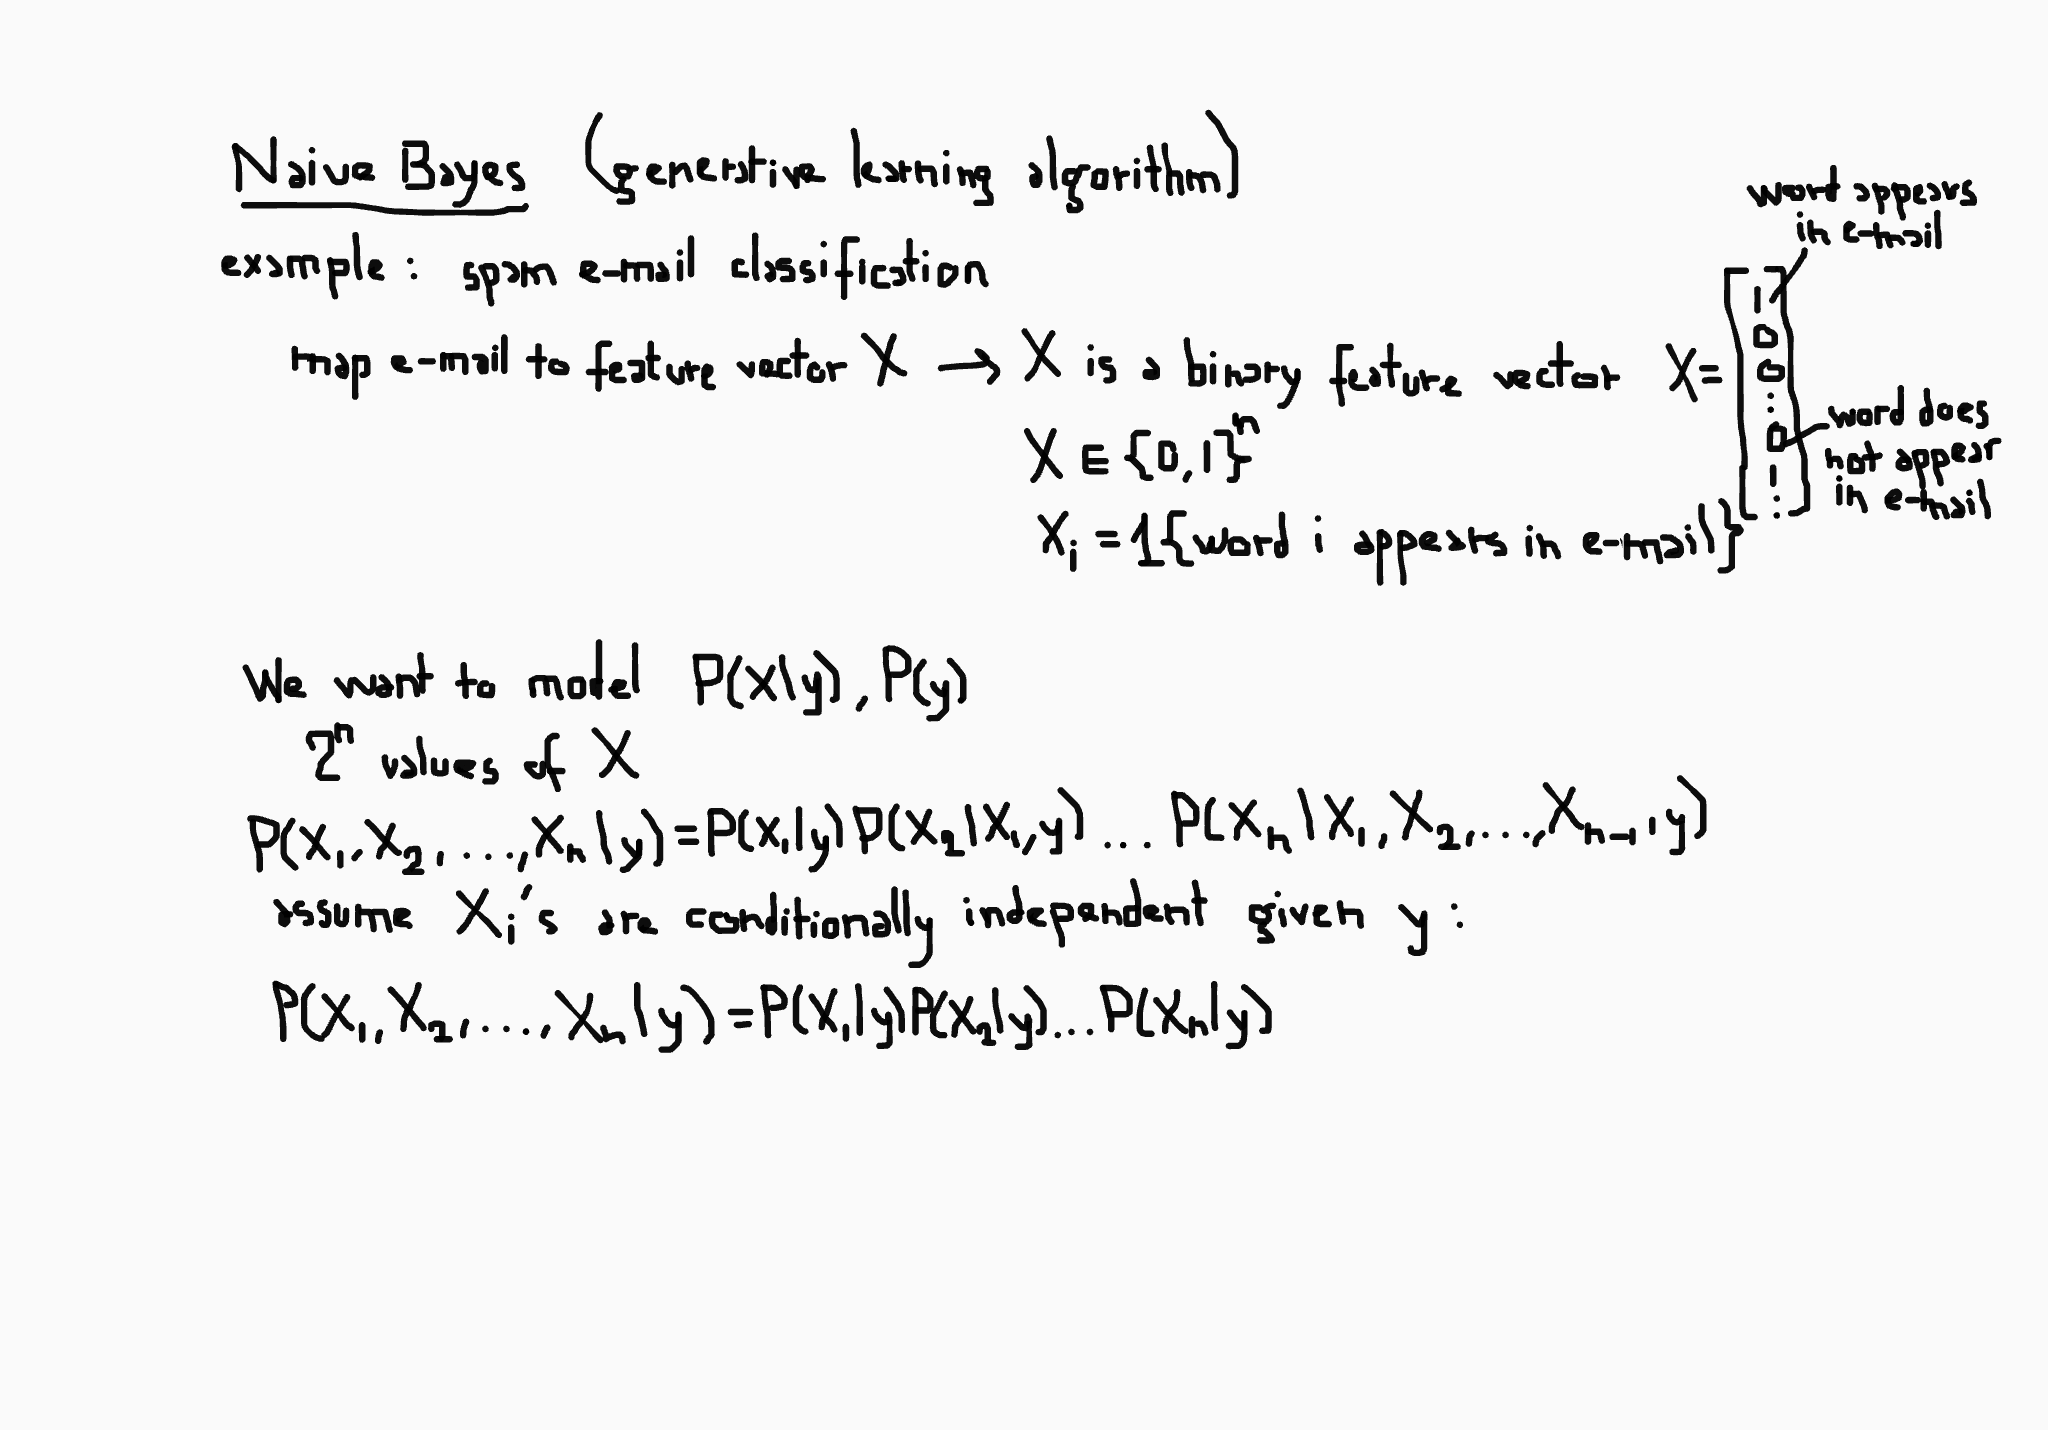 Naive Bayes (generative learning algorithm)
word appears
in e-mail
example : spam e-mail classification
map e-mail to feature vector X → X is a binary feature vector X = [1 0 0 ⋮ 0 1 ⋮]
word does
not appear
in e-mail
X ∈ {0,1}ⁿ
Xᵢ = 1{word i appears in e-mail}
We want to model P(X|y), P(y)
2ⁿ values of X
P(X₁, X₂, ..., Xₙ|y) = P(X₁|y) P(X₂|X₁, y) ... P(Xₙ|X₁, X₂, ..., Xₙ₋₁, y)
assume Xᵢ's are conditionally independent given y :
P(X₁, X₂, ..., Xₙ|y) = P(X₁|y) P(X₂|y) ... P(Xₙ|y)